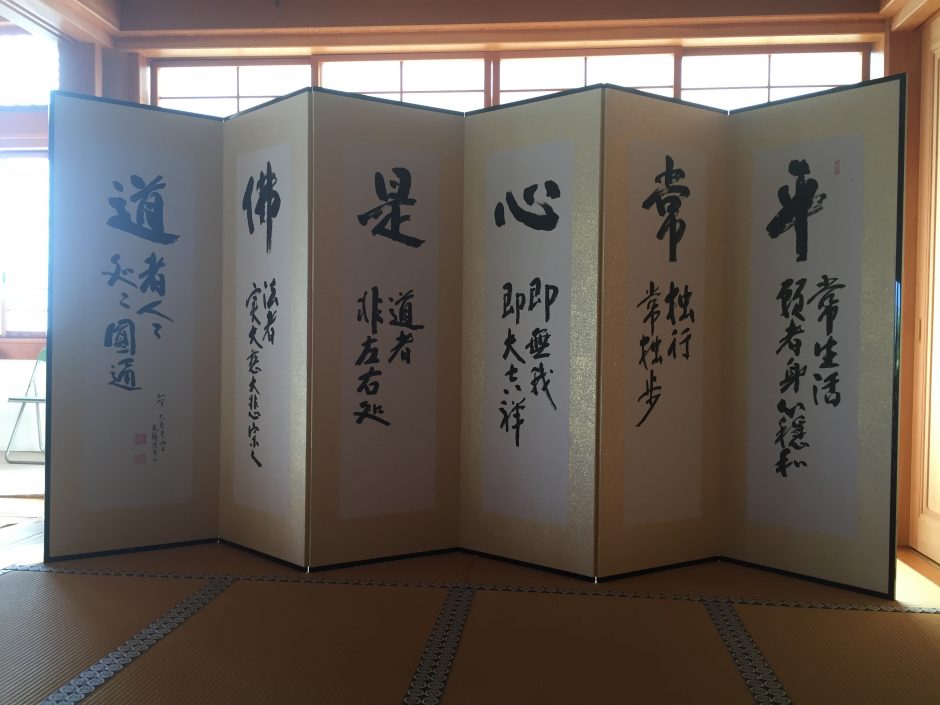 平
常生活
願者身心穏和
常
独行
常独歩
心
即無我
即大吉祥
是
道者
非左右処
佛
法者
実大慈大悲宗之
道
者人々
処々圓通